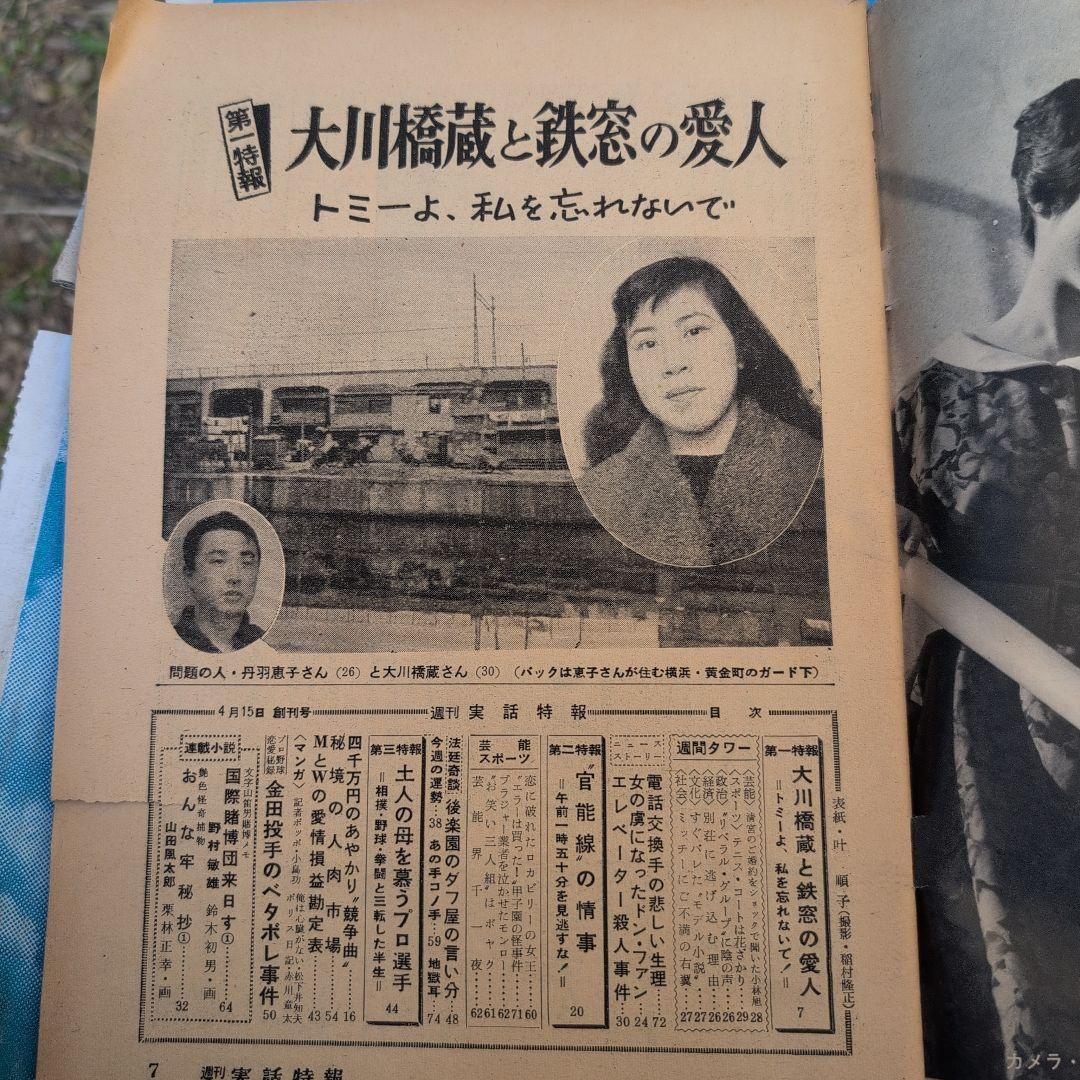 第一特報
大川橋蔵と鉄窓の愛人
トミーよ、私を忘れないで
問題の人・丹羽恵子さん（26）と大川橋蔵さん（30）（バックは恵子さんが住む横浜・黄金町のガード下）
4月15日 創刊号
週刊 実話特報
目次
表紙・叶 順子（撮影・稲村隆正）
第一特報
大川橋蔵と鉄窓の愛人
＝トミーよ、私を忘れないで！＝
7
週間タワー
〈芸能〉清宮のご婚約をショックで聞いた小林旭 28
〈スポーツ〉テニス・コートは花さかり 29
〈政治〉〝リベラル・グループ〟に陰の声 26
〈経済〉別荘に逃げ込む理由 26
〈文化〉すぐバレた〝モデル小説〟 27
〈社会〉ミッチーにご不満の右翼 27
ニュースストーリー
電話交換手の悲しい生理 72
女の虜になったドン・ファン 24
エレベーター殺人事件 30
第二特報
〝官能線〟の情事
＝午前一時五十分を見逃すな！＝
20
芸能スポーツ
恋に破れたロカビリーの女王 60
〝エラーは買った！〟甲子園の怪事件 71
ブラジャー業者を泣かせたモンロー 61
〝お笑い三人組〟はボヤく 62
芸能界千一夜 62
法廷奇談 後楽園のダフ屋の言い分 48
今週の運勢 38 あの手コノ手 59 地獄耳 74
第三特報
土人の母を慕うプロ選手
＝相撲・野球・拳闘と三転した半生＝
44
四千万円のあやかり〝競争曲〟 16
秘境の人肉市場 54
MとWの愛情損益勘定表 43
〈マンガ〉 記者ポッポ・小島功 俺は心臓がない・松下井知夫 ポリス日記・赤川童太
プロ野球恋愛秘録 金田投手のベタボレ事件 50
連載小説
文字山笛男賭博メモ
国際賭博団来日す① 64
野村敏雄 鈴木初男・画
艶色怪奇捕物
おんな牢秘抄① 32
山田風太郎 栗林正幸・画
7 週刊 実話特報
カメラ・